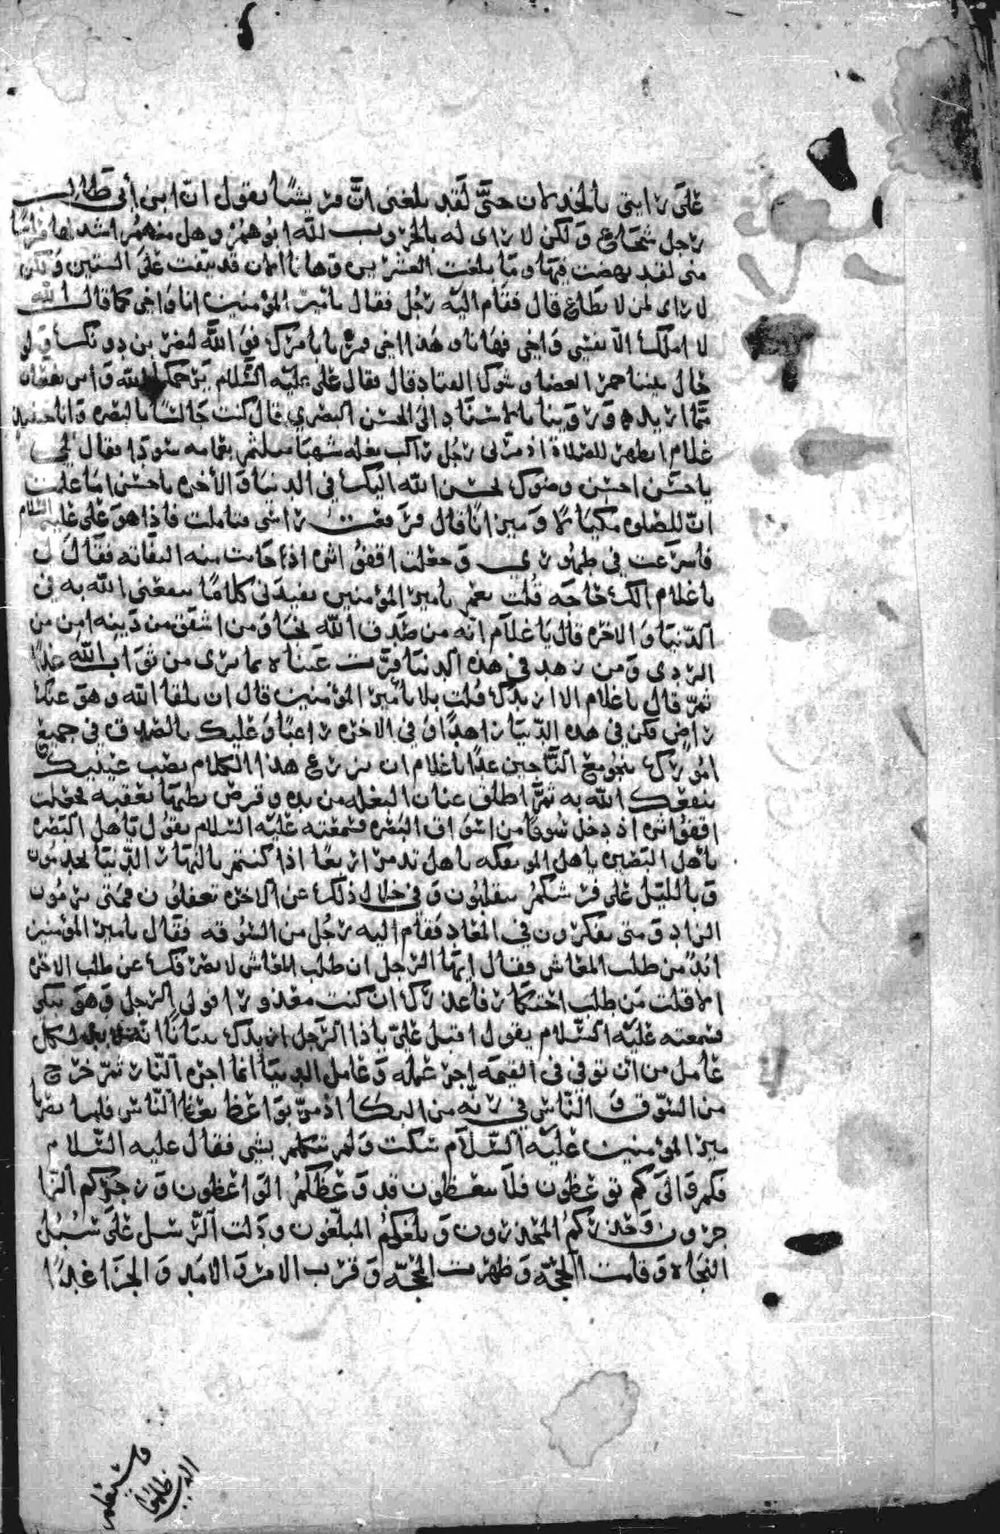 علي رايي بالخذلان حتى لقد بلغني ان قريشا يقول ان ابن أبي طالب
رجل شجاع ولكن لا راى له بالحرب لله ابوهم وهل منهم اشد لها مراسا
مني لقد نهضت فيها وما بلغت العشرين وها انا الان قد نيفت على الستين ولكن
لا راى لمن لا يطاع قال فقام اليه رجل فقال يامير المؤمنين انا واخي كما قال الله
لا املك الا نفسي واخي فها انا وهذا اخي فمرنا بامرك فو الله لنضربن دونك ولو
حال بيننا جمر الغضا وشوك القتاد قال فقال علي عليه السلام يرحمكما الله واين تقعان
مما اريده وروينا بالاسناد الى الحسن البصري قال كنت جالسا بالبصره وانا حينئذ
غلام اتطهر للصلاة اذ مر بي رجل راكب بغله شهبا متلثم بعمامه سودا فقال لي
يا حسن احسن وضوك يحسن الله اليك في الدنيا والأخره يا حسن اما علمت
ان للصلوه مكيالا وميزانا قال فرفعت راسي فتاملت فاذا هو علي عليه السلام
فأسرعت في طهوري وجعلت اقفو اثره اذا حانت منه التفاته فقال لي
يا غلام الك حاجه قلت نعم يامير المؤمنين تفيدني كلاما ينفعني الله به في
الدنيا والاخره قال يا غلام انه من صدق الله نجا ومن اشفق من دينه امن من
الردى ومن زهد في هذه الدنيا قرت عيناه بما يرى من ثواب الله غدا
ثم قال يا غلام الا ازيدك قلت بلا يامير المؤمنين قال ان تلقا الله وهو عنك
راض فكن في هذه الدنيا زاهدا وفي الاخره راغبا وعليك بالصدق في جميع
امورك مع الناجين غدا يا غلام ان تزرع هذا الكلام نصب عينيك
ينفعك الله به ثم اطلق عنان البغله من يده وقرض بطنها بعقبه فجعلت
اقفو اثره اذ دخل سوقا من اسواق البصره فسمعته عليه السلام يقول يا هل البصره
يا هل البصيره يا هل المؤتفكه يا هل تدمر اربعا اذا كنتم بالنهار الدنيا تخدمون
وبالليل على فرشكم تتقلبون وفي خلال ذلك عن الاخره تغفلون فمتى ترمون
الزاد ومتى تفكرون في المعاد فقام اليه رجل من السوقه فقال يامير المؤمنين
لابد من طلب المعاش فقال ايها الرجل ان طلب المعاش لا يصرفك عن طلب الاخره
الا قلت من طلب احتكار فاعذرك ان كنت معذورا فولى الرجل وهو يبكي
فسمعته عليه السلام يقول اقبل علي يا ذا الرجل ازيدك بيانا انه لابد لكل
عامل من ان توفي في القيمه اجر عمله وعامل الدنيا انما اجره النار ثم خرج
من السوق والناس في رنه من البكا اذ مر بواعظ يعظ الناس فلما بصر يا
مير المؤمنين عليه السلام سكت ولم يتكلم بشي فقال عليه السلام
فكم والى كم توعظون فلا تتعظون قد وعظكم الواعظون وزجركم الزا
جرون وحذركم المحذرون وبلغكم المبلغون ودلت الرسل على سبل
النجاه وقامت الحجه وظهرت المحجه وقرب الامر والامد والجزا غدا
وسيعلم
الذين ظلموا